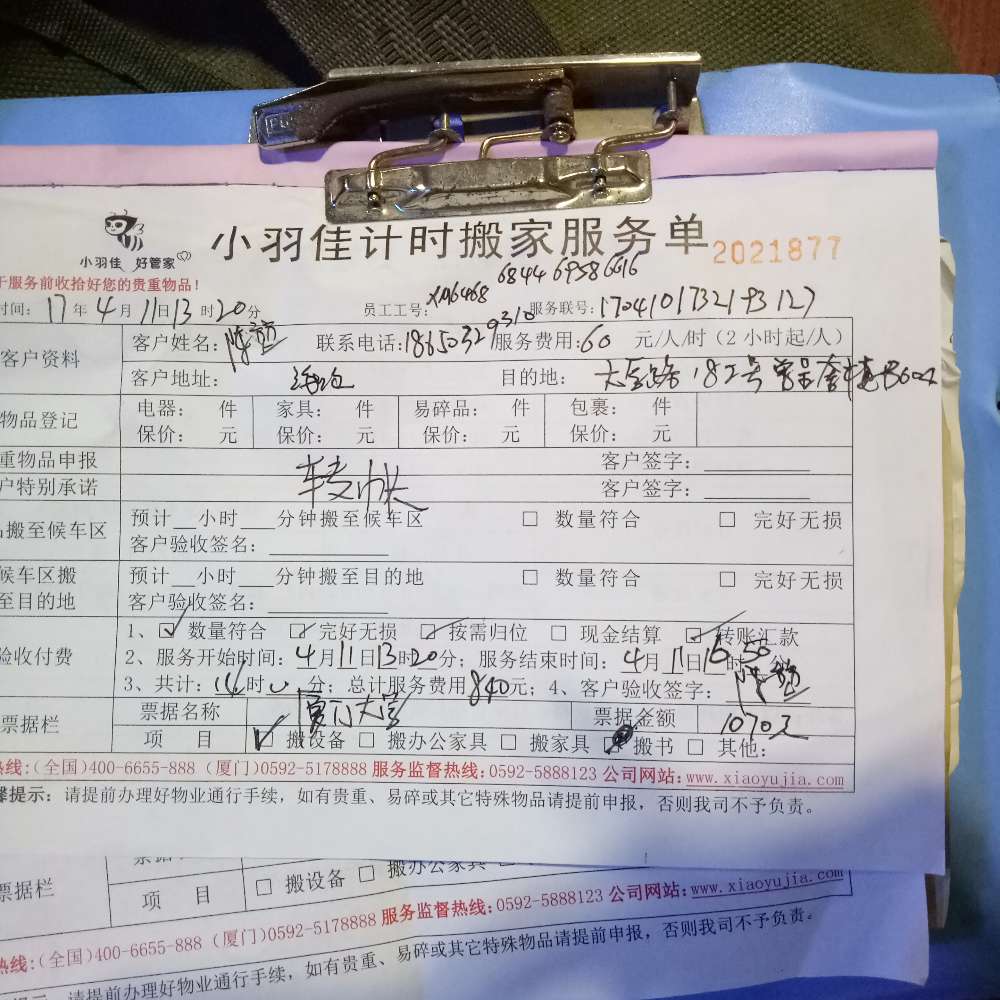 小羽佳 好管家
小羽佳计时搬家服务单
2021877
于服务前收拾好您的贵重物品！
6844 6958 6616
时间：17年4月11日13时20分 员工工号：X06468 服务联号：1704101732193127
客户资料
客户姓名： 联系电话：18650329310 服务费用：60 元/人/时（2小时起/人）
客户地址： 目的地：
物品登记
电器： 件 家具： 件 易碎品： 件 包裹： 件
保价： 元 保价： 元 保价： 元 保价： 元
重物品申报 客户签字：
户特别承诺 转账 客户签字：
品搬至候车区
预计__小时___分钟搬至候车区 □ 数量符合 □ 完好无损
客户验收签名：
候车区搬至目的地
预计__小时___分钟搬至目的地 □ 数量符合 □ 完好无损
客户验收签名：
验收付费
1、☑ 数量符合 ☑ 完好无损 ☑ 按需归位 □ 现金结算 ☑ 转账汇款
2、服务开始时间：4月11日13时20分；服务结束时间：4月11日16时50分
3、共计：14时0分；总计服务费用840元；4、客户验收签字：
票据栏
票据名称 厦门大学 票据金额 1070元
项 目 ☑ 搬设备 □ 搬办公家具 □ 搬家具 搬书 □ 其他：
热线：(全国)400-6655-888 (厦门)0592-5178888 服务监督热线：0592-5888123 公司网站：www.xiaoyujia.com
馨提示：请提前办理好物业通行手续，如有贵重、易碎或其它特殊物品请提前申报，否则我司不予负责。
票据栏
项 目 □ 搬设备 □ 搬办公家具
热线：(全国)400-6655-888 (厦门)0592-5178888 服务监督热线：0592-5888123 公司网站：www.xiaoyujia.com
提示：请提前办理好物业通行手续，如有贵重、易碎或其它特殊物品请提前申报，否则我司不予负责。